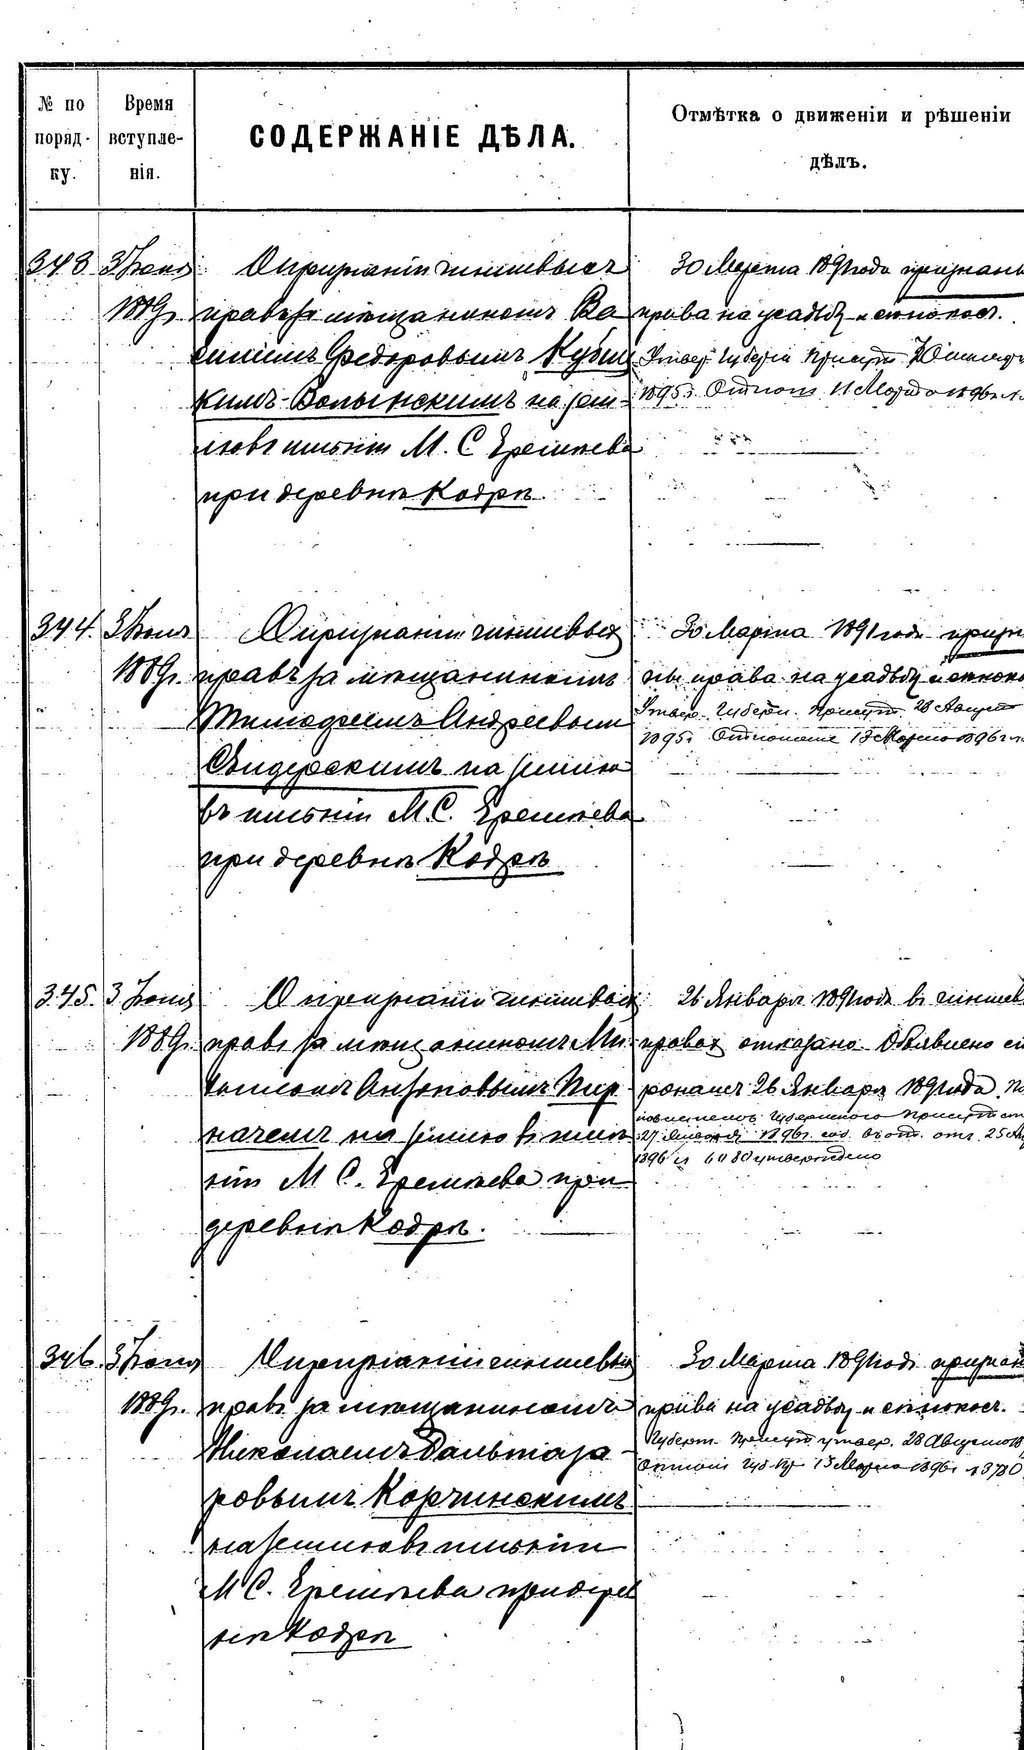 № по поряд- ку.
Время вступле- нія.
СОДЕРЖАНІЕ ДѢЛА.
Отмѣтка о движеніи и рѣшеніи дѣлъ.
343
3 Іюня
1889г.
О признаніи чиншевыхъ
правъ за мѣщаниномъ Ва
силіемъ Федоровымъ
кимъ-Волынскимъ на зем-
лю въ имѣніи М. С. Еремѣева
при деревнѣ Кодрѣ.
30 Марта 1891 года признаны
права на усадьбу и сѣнокосъ.
Утвер. Губерн. Присут.
1895г. Отнош. 11 Марта 1896 г.
344.
3 Іюня
1889г.
О признаніи чиншевыхъ
правъ за мѣщаниномъ
Тимофеемъ Андреевымъ
Свидерскимъ на землю
въ имѣніи М. С. Еремѣева
при деревнѣ Кодрѣ
30 Марта 1891 года призна
ны права на усадьбу и сѣноко
Утвер. Губерн. Присут. 28 Август
1895г. Отношеніе 13 Марта 1896 г.
345.
3 Іюня
1889г.
О признаніи чиншевыхъ
правъ за мѣщаниномъ
Антоновымъ Пир
начемъ на землю въ имѣ
ніи М. С. Еремѣева при
деревнѣ Кодрѣ.
26 Января 1891 года въ чиншев
правахъ отказано. Объявлено ст
ронамъ 26 Января 1891 года. По
Губернскаго Присутст
27 1896г. отъ 25
1896 г. 6080 утверждено
346.
3 Іюня
1889г.
О признаніи чиншевыхъ
правъ за мѣщаниномъ
Николаемъ Бальтаза
ровымъ Корчинскимъ
на землю въ имѣніи
М. С. Еремѣева при дерев
нѣ Кодрѣ
30 Марта 1891 года признан
права на усадьбу и сѣнокосъ.
Губерн. Присут утвер. 28 Августа
Отнош Губ. Пр 13 Марта 1896г. № 3780